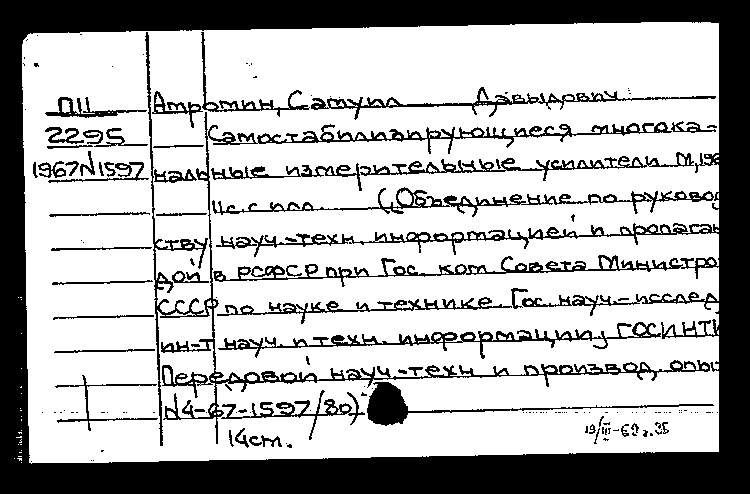 П11 Атромин, Самуил Давыдович
2295 Самостабилизирующиеся многока-
1967N1597 нальные измерительные усилители М, 196
11с. с илл. (Объединение по руковод
ству науч.-техн. информацией и пропаган
дой в РСФСР при Гос. ком. Совета Министро
СССР по науке и технике. Гос. науч.-исслед
ин-т науч. и техн. информации, ГОСИНТИ
Передовой науч.-техн и производ, опы
N4-67-1597/80)
14cm.